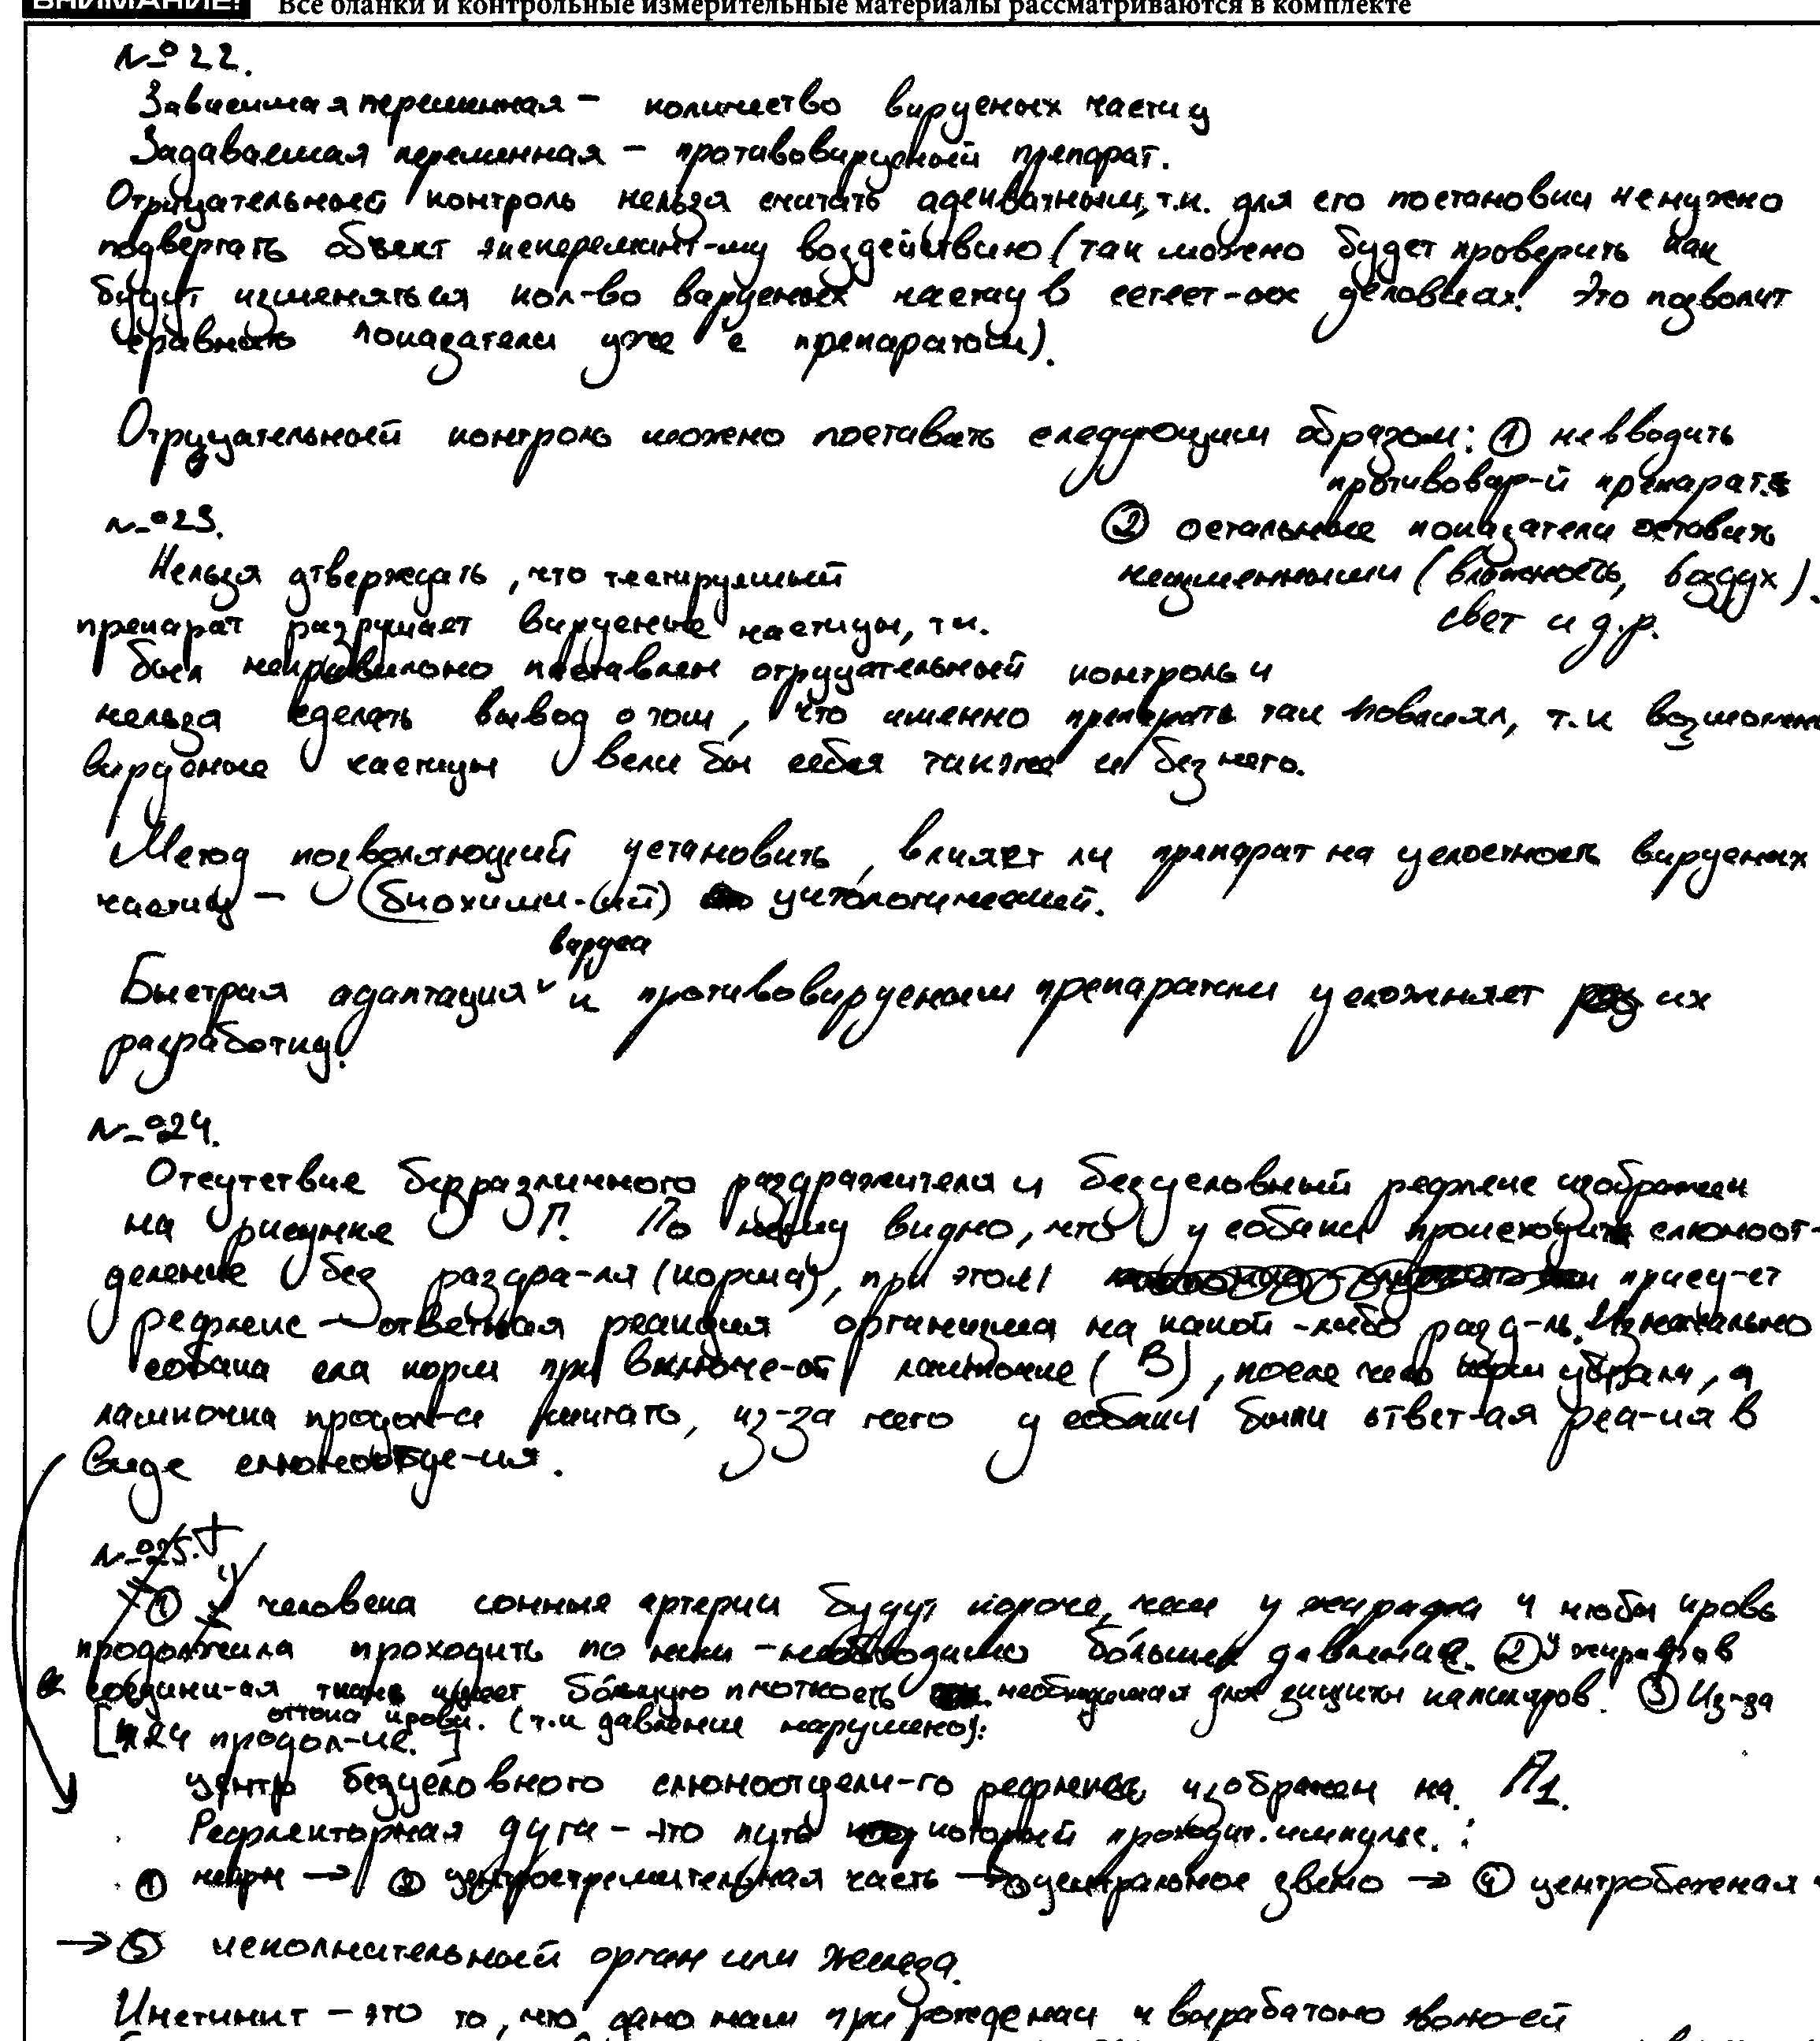 ВНИМАНИЕ! Все бланки и контрольные измерительные материалы рассматриваются в комплекте
№22.
Зависимая переменная – количество вирусных частиц
Задаваемая переменная – противовирусный препарат.
Отрицательный контроль нельзя считать адекватным, т.к. для его постановки не нужно
подвергать объект эксперемент-му воздействию (так можно будет проверить как
будут изменяться кол-во вирусных частиц в естест-ых условиях. Это позволит
сравнить показатели уже с препаратом).
Отрицательный контроль можно поставить следующим образом: ① не вводить
противовир-й препарат.
№23.
② остальные показатели оставить
Нельзя утверждать, что тестируемый
неизменными (влажность, воздух).
препарат разрушает вирусные частицы, т.к.
свет и д.р.
был неправильно поставлен отрицательный контроль и
нельзя сделать вывод о том, что именно препарать так повлиял, т.к возможно
вирусные частицы вели бы себя также и без него.
Метод позволяющий установить, влияет ли препарат на целостность вирусных
частиц – (биохими-ий) цитологический.
вируса
Быстрая адаптация к противовирусным препаратам усложняет их
разработку.
№24.
Отсутствие безразличного раздражителя и безусловный рефлекс изображен
на рисунке П. По нему видно, что у собаки происходит слюноот-
деление без раздра-ля (корма), при этом присут-ет
рефлекс – ответная реакция организма на какой-либо разд-ль. Изначально
собака ела корм при включе-ой лампочке (В), после чего корм убрали, а
лампочка продол-а мигать, из-за чего у собаки были ответ-ая реа-ия в
виде слюноотде-ия.
№25.
① У человека сонные артерии будут короче, чем у жирафа и чтобы кровь
продолжила проходить по ним – необходимо большее давление. ② У жирафов
соедини-ая ткань имеет большую плотность необходимая для защиты капиляров. ③ Из-за
оттока крови. (т.к давление нарушено).
[№24 продол-ие.]
центр безусловного слюноотдели-го рефлекса изображен на А1.
Рефлекторная дуга – это путь который проходит импульс. :
① нейрн → ② центростремительная часть → ③ центральное звено → ④ центробежная ч
→ ⑤ исполнительный орган или железа.
Инстинкт – это то, что дано нам при рождении и выработано эволю-ей